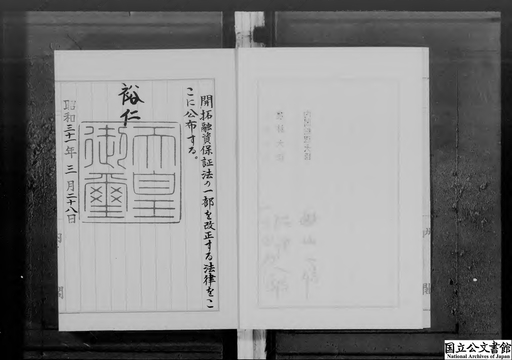 開拓融資保証法の一部を改正する法律をこ
こに公布する。
裕仁
天皇
御璽
昭和三十一年三月二十八日
内閣
国立公文書館
National Archives of Japan